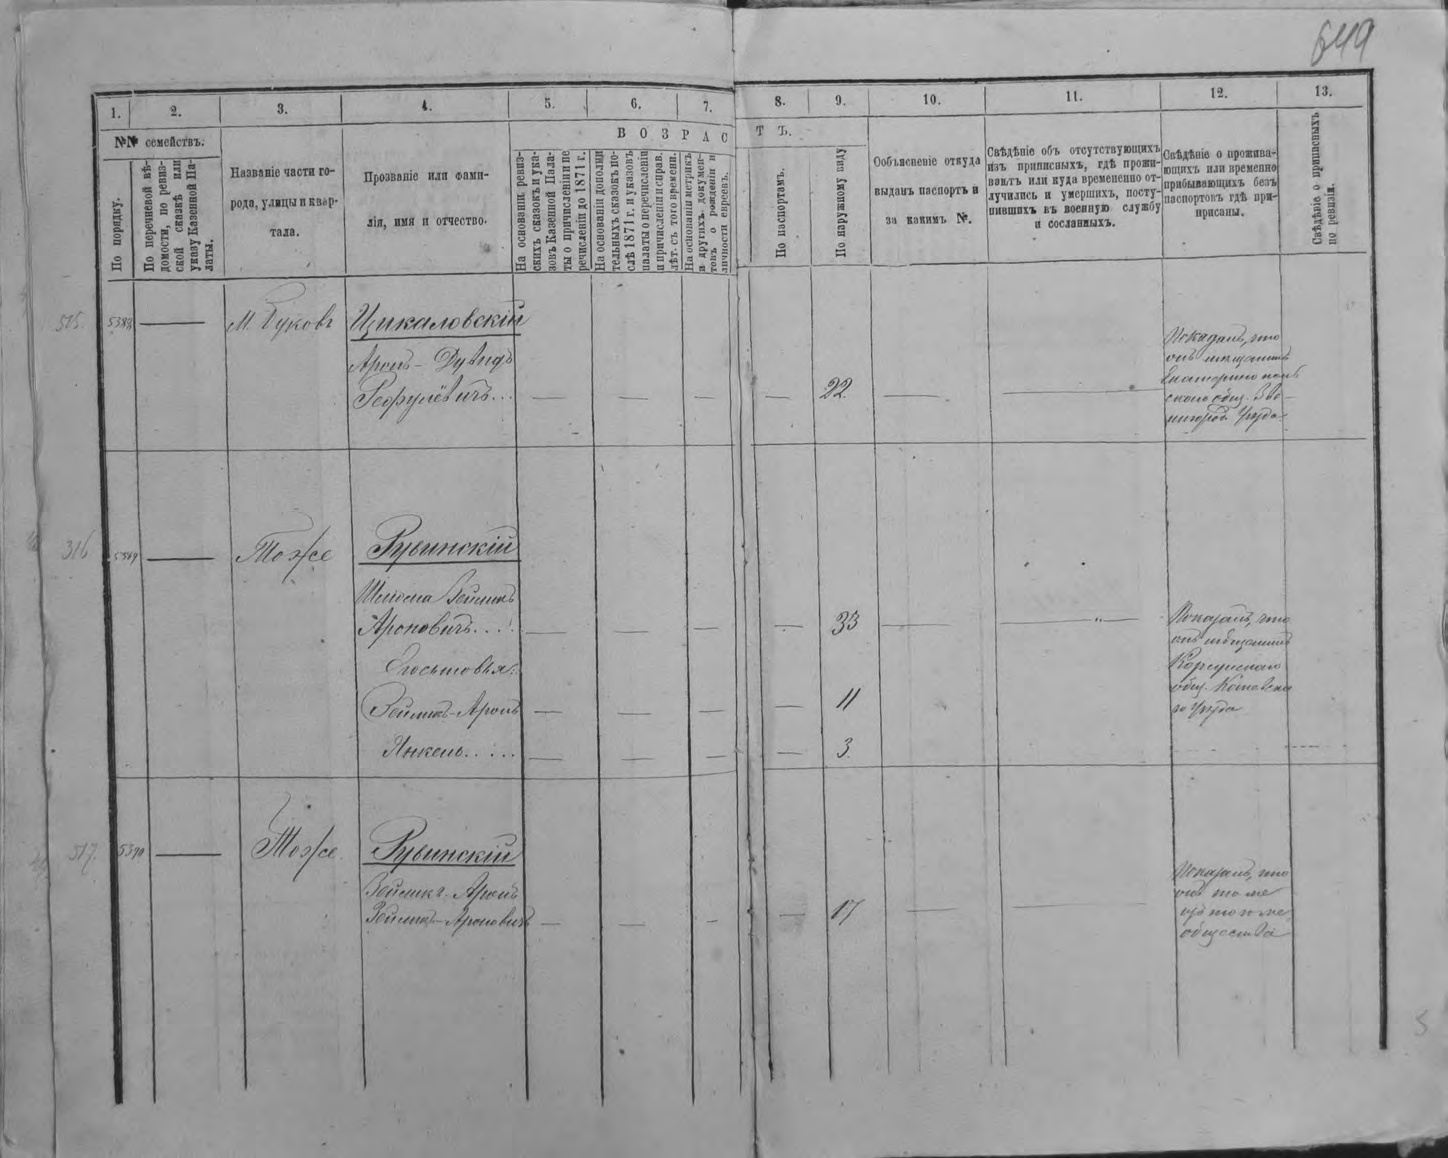 649
1.
2.
3.
4.
5.
6.
7.
8.
9.
10.
11.
12.
13.
№№ семействъ.
ВОЗРАСТЪ.
По порядку.
По перечневой вѣ-
домости, по ревиз-
ской сказкѣ или
указу Казенной Па-
латы.
Названіе части го-
рода, улицы и квар-
тала.
Прозваніе или фами-
лія, имя и отчество.
На основаніи ревиз-
скихъ сказокъ и ука-
зовъ Казенной Пала-
ты о причисленіи и пе
речисленіи до 1871 г.
На основаніи дополни
тельныхъ сказокъ по-
слѣ 1871 г. и указовъ
палаты о перечисленіи
и причисленіи и исправ.
лѣт. съ того времени.
На основаніи метрикъ
и другихъ докумен-
товъ о рожденіи и
личности евреевъ.
По паспортамъ.
По наружному виду
Объясненіе откуда
выданъ паспортъ и
за какимъ №.
Свѣдѣніе объ отсутствующихъ
изъ приписныхъ, гдѣ прожи-
ваютъ или куда временено от-
лучились и умершихъ, посту-
пившихъ въ военную службу
и сосланныхъ.
Свѣдѣніе о прожива-
ющихъ или временно
прибывающихъ безъ
паспортовъ гдѣ при-
писаны.
Свѣдѣніе о приписныхъ
по ревизіи.
515.
5388
М. Буковъ
Цикаловскій
Аронъ - Дувидъ
22
Показалъ, что
онъ мещанинъ
Екатеринополь
скаго общ. Зве-
нигород. Уѣзда
316
5389
Тоже
Рувинскій
Шлиома Зейликъ
Ароновичъ...
33
Сыновья:
Зейликъ-Аронъ
11
Янкель.....
3
Показалъ, что
онъ мѣщанинъ
Корсунскаго
общ. Каневска
го Уѣзда
517.
5390
Тоже
Рувинскій
Аронъ
Зейликъ-Ароновичъ
17
Показалъ, что
онъ то же
общества